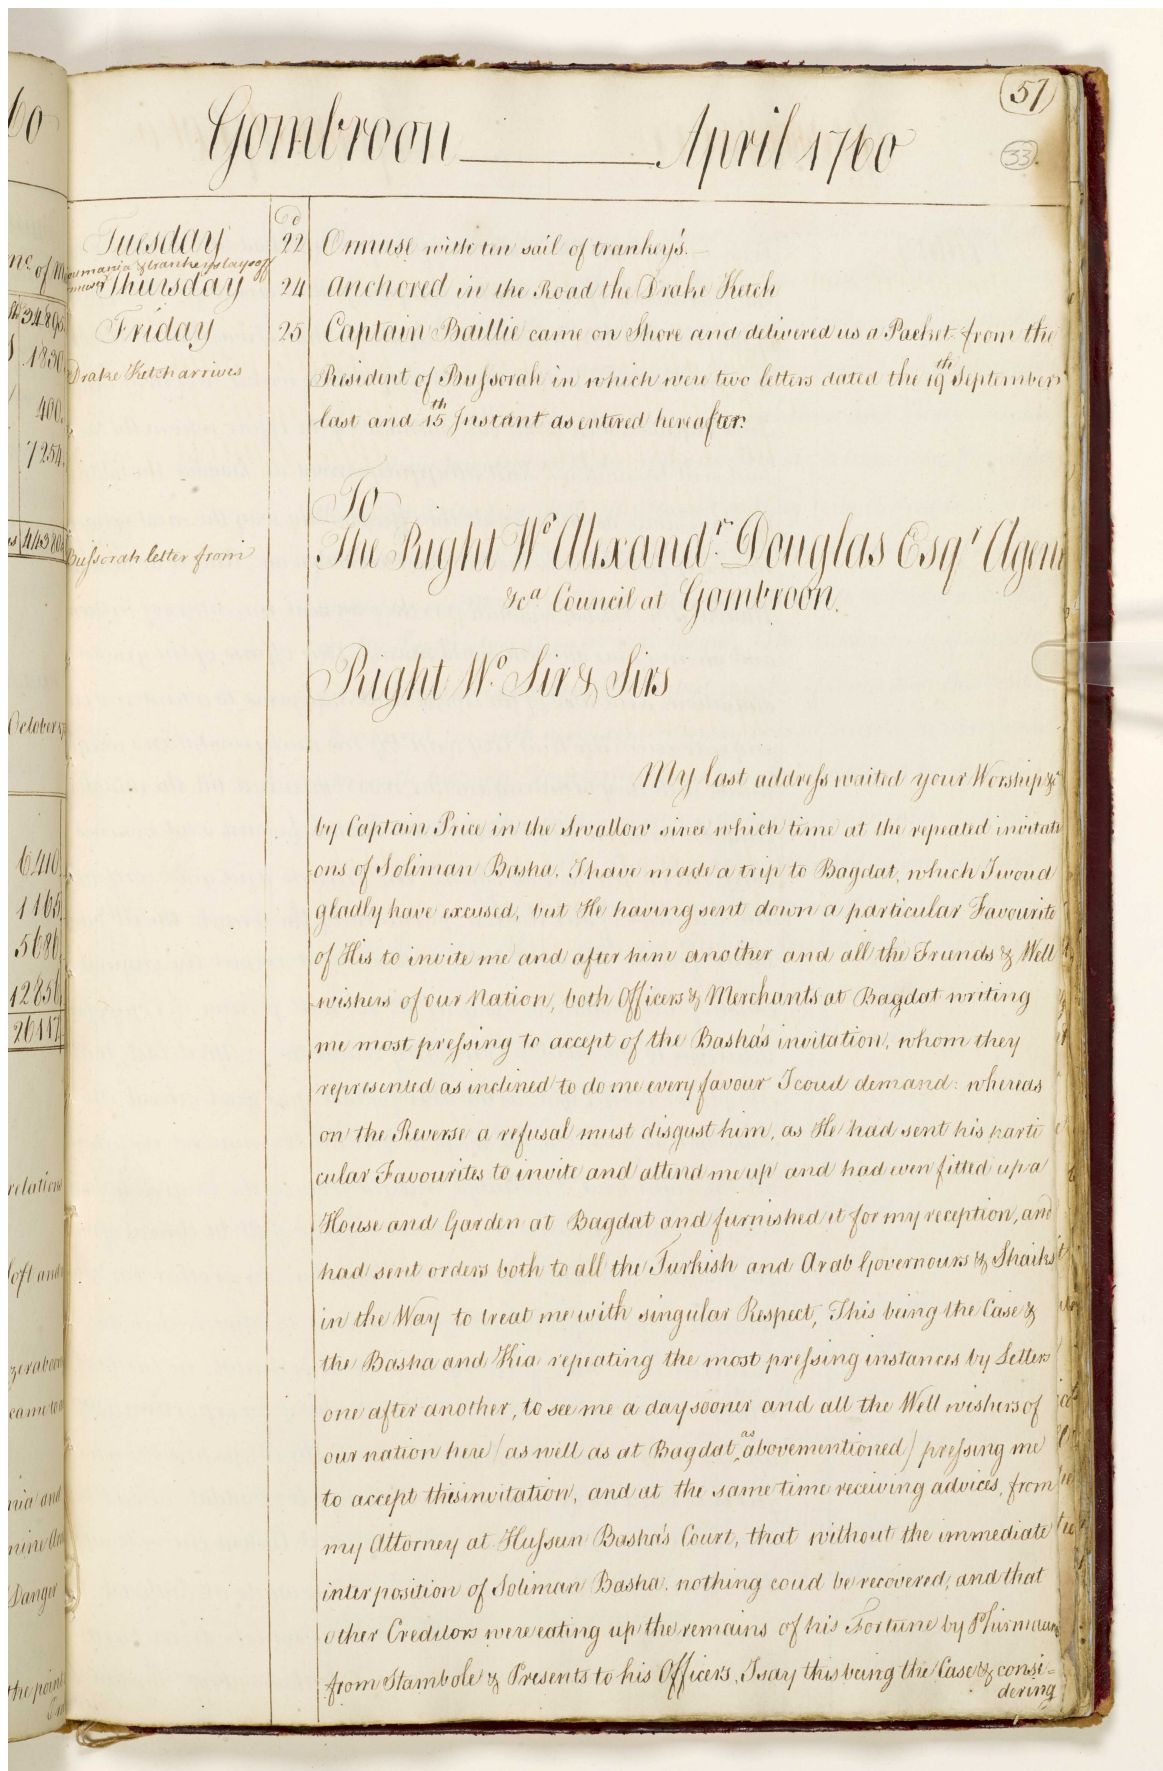 57
Gombroon April 1760
33
Tuesday 22 Ormuse with ten sail of trankey's.
Thursday 24 Anchored in the Road the Drake Ketch
Friday 25 Captain Baillie came on Shore and delivered us a Packet from the
Drake Ketch arrives
Resident of Bussorah in which were two letters dated the 19th September
last and 15th Instant as entered hereafter.
To
Bussorah letter from
The Right Wo. Alexandr. Douglas Esqr Agent
&ca Council at Gombroon.
Right Wo. Sir & Sirs
My last address waited your Worship &c
by Captain Price in the Swallow since which time at the repeated invitati
ons of Soliman Basha. I have made a trip to Bagdat, which I woud
gladly have excused, but He having sent down a particular Favourite
of His to invite me and after him another and all the Friends & Well
wishers of our Nation, both Officers & Merchants at Bagdat writing
me most pressing to accept of the Basha's invitation, whom they
represented as inclined to do me every favour I coud demand: whereas
on the Reverse a refusal must disgust him, as He had sent his parti
cular Favourites to invite and attend me up and had even fitted up a
House and Garden at Bagdat and furnished it for my reception, and
had sent orders both to all the Turkish and Arab Governours & Shaiks
in the Way to treat me with singular Respect, This being the Case &
the Basha and Kia repeating the most pressing instances by Letters
one after another, to see me a day sooner and all the Well wishers of
our nation here (as well as at Bagdat as abovementioned) pressing me
to accept this invitation, and at the same time receiving advices, from
my Attorney at Hussein Basha's Court, that without the immediate
interposition of Soliman Basha. nothing coud be recovered, and that
other Creditors were eating up the remains of his Fortune by Phirmauns
from Stambole & Presents to his Officers, I say this being the Case & consi-
dering